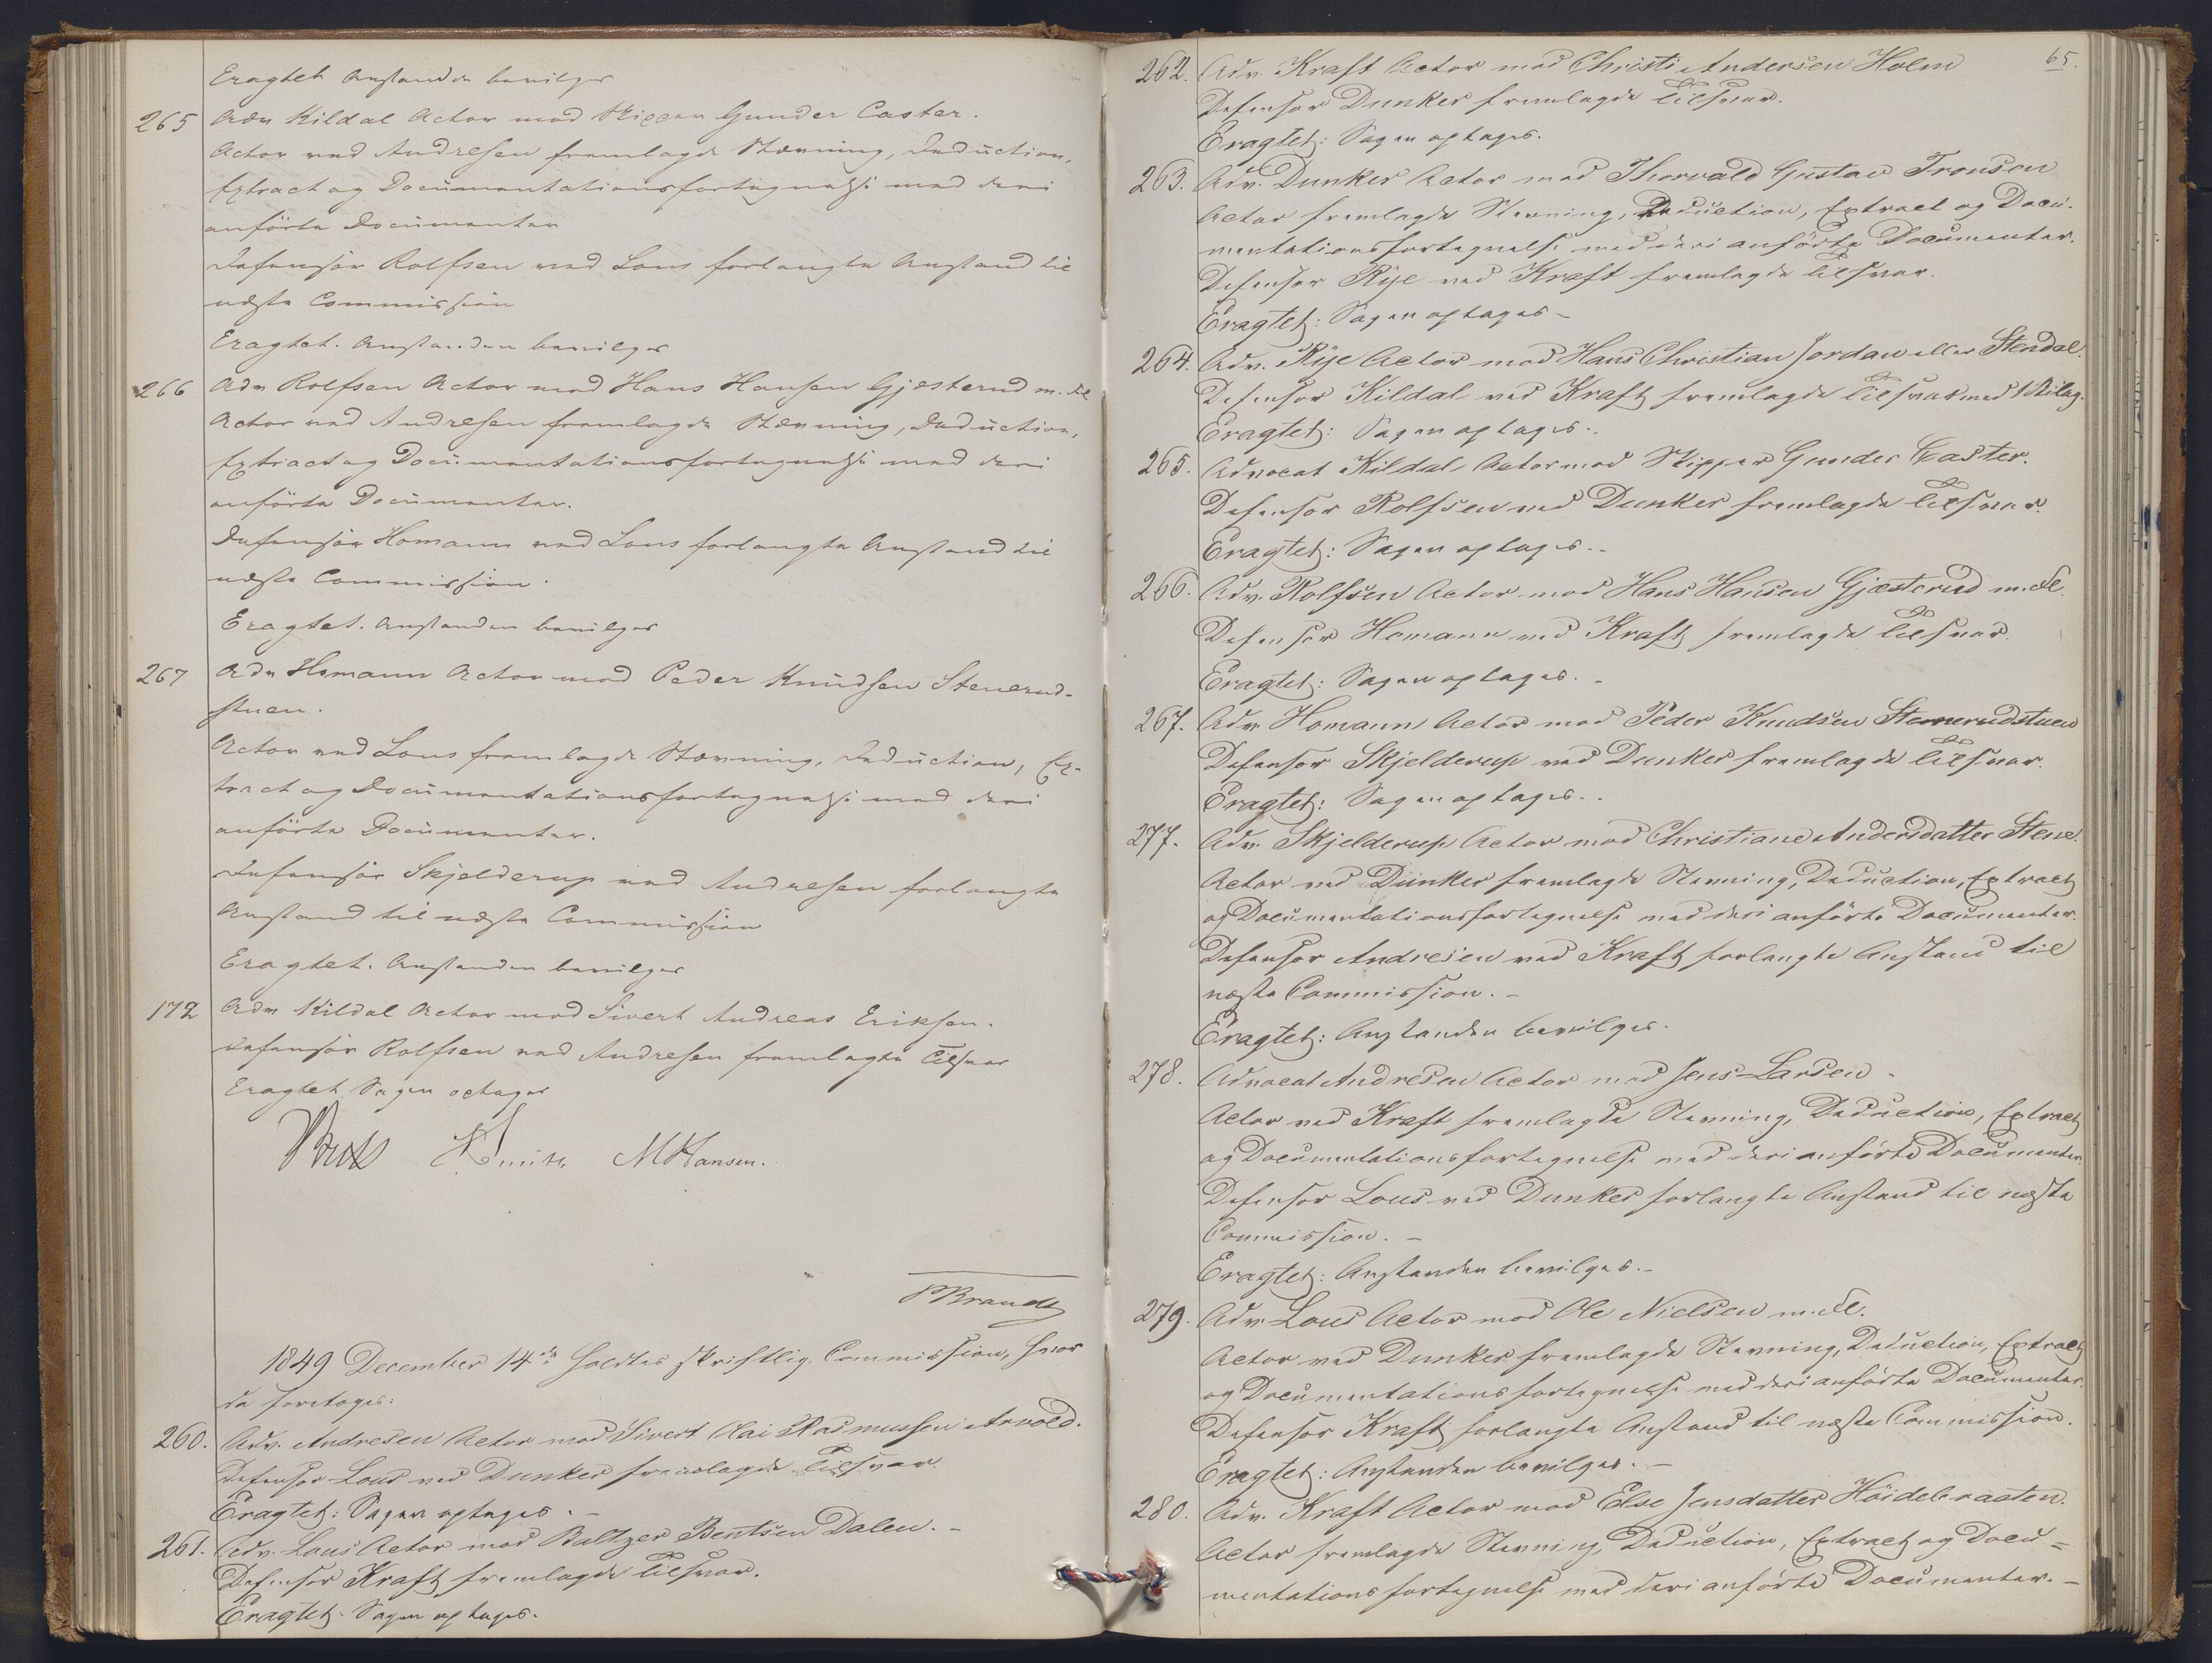 Eragtet Anstanden bevilges
265 Adv Kildal Actor mod Skipper Gunder Caster.
Actor ved Andresen fremlagde Stævning, Deduction,
Extract og Documentationsfortegnelse med deri
anførte Documenter
Defensor Rolfsen ved Lous forlangte Anstand til
næste Commission
Eragtet. Anstanden bevilges
266 Adv Rolfsen Actor mod Hans Hansen Gjæsterud m. fl
Actor ved Andresen fremlagde Stævning, Deduction,
Extract og Documentationsfortegnelse med deri
anførte Documenter.
Defensor Homann ved Lous forlangte Anstand til
næste Commission.
Eragtet. Anstanden bevilges
267 Adv Homann Actor mod Peder Knudsen Stenerud-
stuen.
Actor ved Lous fremlagde Stævning, Deduction, Ex-
tract og Documentationsfortegnelse med deri
anførte Documenter.
Defensor Skjelderup ved Andresen forlangte
Anstand til næste Commission
Eragtet. Anstanden bevilges
172 Adv Kildal Actor mod Sivert Andreas Eriksen.
Defensor Rolfsen ved Andresen fremlagde Tilsvar
Eragtet Sagen optages
MHansen.
PBrandt
1849 December 14de holdtes skriftlig Commission, hvor
da foretoges:
260. Adv. Andresen Actor mod Sivert Kai Rasmussen Arvold.
Defensor Lous ved Dunker fremlagde Tilsvar.
Eragtet: Sagen optages.
261. Adv. Lous Actor mod Baltzer Bentsen Dalen.-
Defensor Kraft fremlagde Tilsvar.
Eragtet: Sagen optages.
65.
262. Adv. Kraft Actor mod Christi Andersen Holm
Defensor Dunker fremlagde Tilsvar.
Eragtet: Sagen optages.
263. Adv. Dunker Actor mod Thorvald Gustav Tronsen
Actor fremlagde Stevning, Deduction, Extract og Docu-
mentationsfortegnelse med deri anførte Documenter.
Defensor Rije ved Kraft fremlagde Tilsvar.
Eragtet: Sagen optages-
264. Adv. Rije Actor mod Hans Christian Jordan eller Stendal.
Defensor Kildal ved Kraft fremlagde Tilsvar med 1 Bilag.
Eragtet: Sagen optages..
265. Advocat Kildal Actor mod Skipper Gunder Caster.
Defensor Rolfsen ved Dunker fremlagde Tilsvar.
Eragtet: Sagen optages..
266. Adv. Rolfsen Actor mod Hans Hansen Gjæsterud m. fl.
Defensor Homann ved Kraft fremlagde Tilsvar.
Eragtet: Sagen optages.-
267. Adv. Homann Actor mod Peder Knudsen Stenerudstuen
Defensor Skjelderup ved Dunker fremlagde Tilsvar.
Eragtet: Sagen optages..
277. Adv. Skjelderup Actor mod Christiane Andersdatter Stene.
Actor ved Dunker fremlagde Stevning, Deduction, Extract
og Documentationsfortegnelse med deri anførte Documenter.
Defensor Andresen ved Kraft forlangte Anstand til
næste Commission.-
Eragtet: Anstanden bevilges.
278. Advocat Andresen Actor mod Jens Larsen.
Actor ved Kraft fremlagde Stevning, Deduction, Extract
og Documentationsfortegnelse med deri anførte Documenter.
Defensor Lous ved Dunker forlangte Anstand til næste
Commission.-
Eragtet: Anstanden bevilges.-
279. Adv. Lous Actor mod Ole Nielsen m. fl.
Actor ved Dunker fremlagde Stevning, Deduction, Extract
og Documentationsfortegnelse med deri anførte Documenter.
Defensor Kraft forlangte Anstand til næste Commission.
Eragtet: Anstanden bevilges.-
280. Adv. Kraft Actor mod Else Jensdatter Höidebraaten.
Actor fremlagde Stevning, Deduction, Extract og Docu=
mentationsfortegnelse med deri anførte Documenter.-